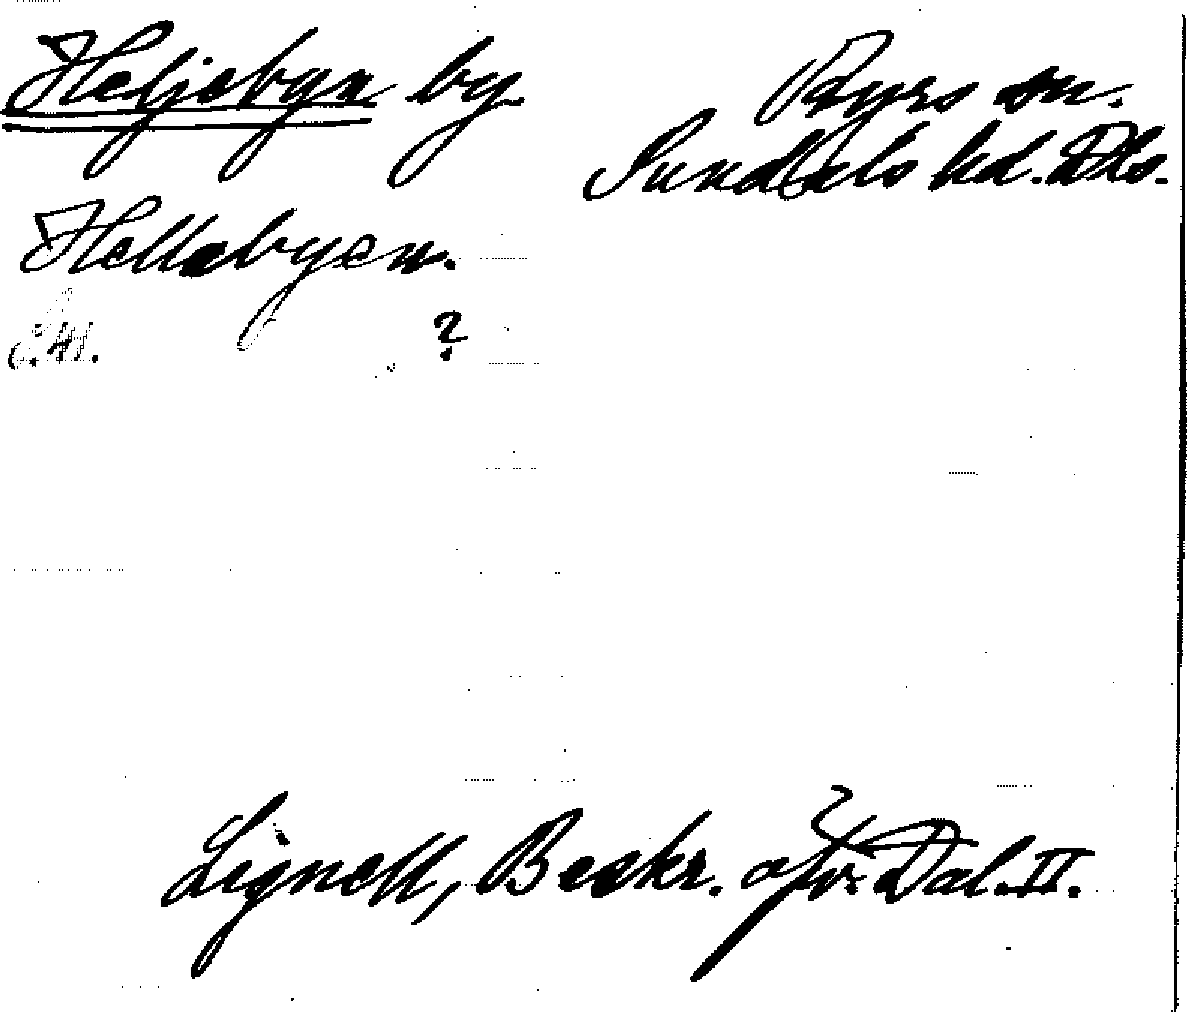 Heljebyn by Ryrs sn.
Sundals hd. Dls.
Hellebyen.
?
Lignell, Beskr. öfv. Dal. II.